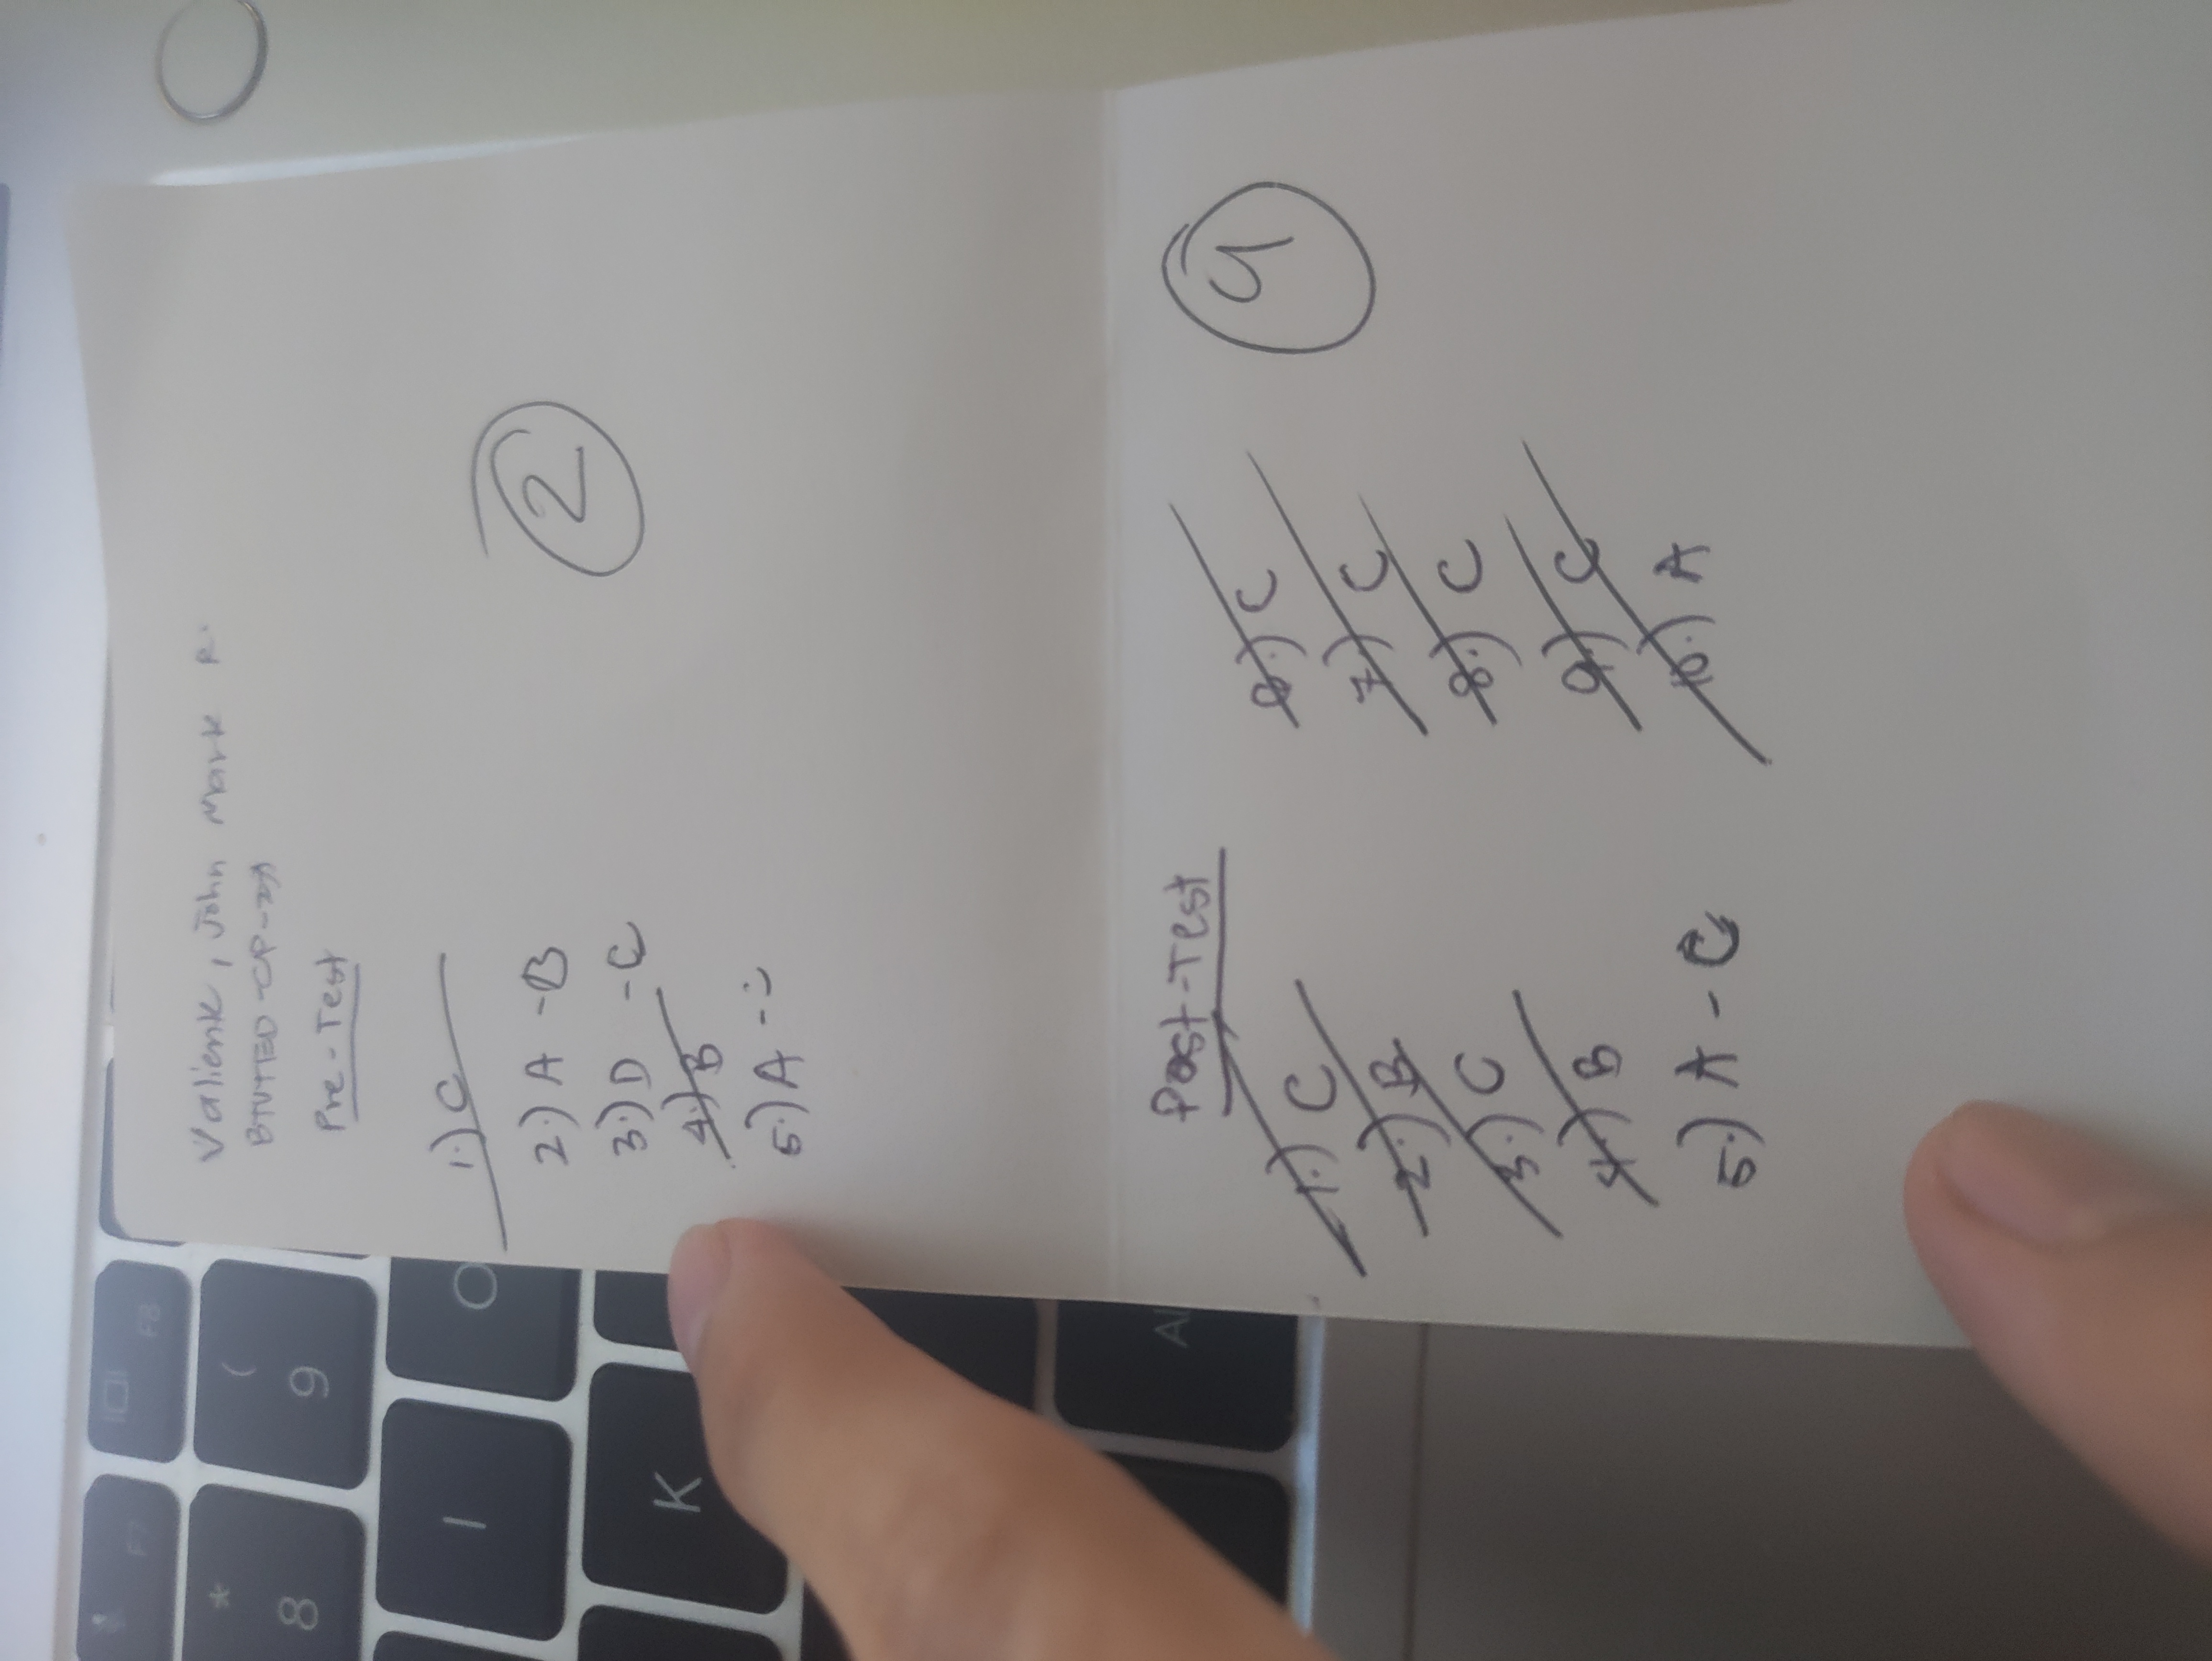 F7
F8
*
8
(
9
I
O
K
Valiente, John Mark R.
BTVTED-CP-2A
Pre-Test
1.) C
2.) A - B
3.) D - C
4.) B
5.) A -
2
Post-Test
1.) C
2.) B
3.) C
4.) B
5.) A - C
6.) C
7.) C
8.) C
9.) C
10.) A
9